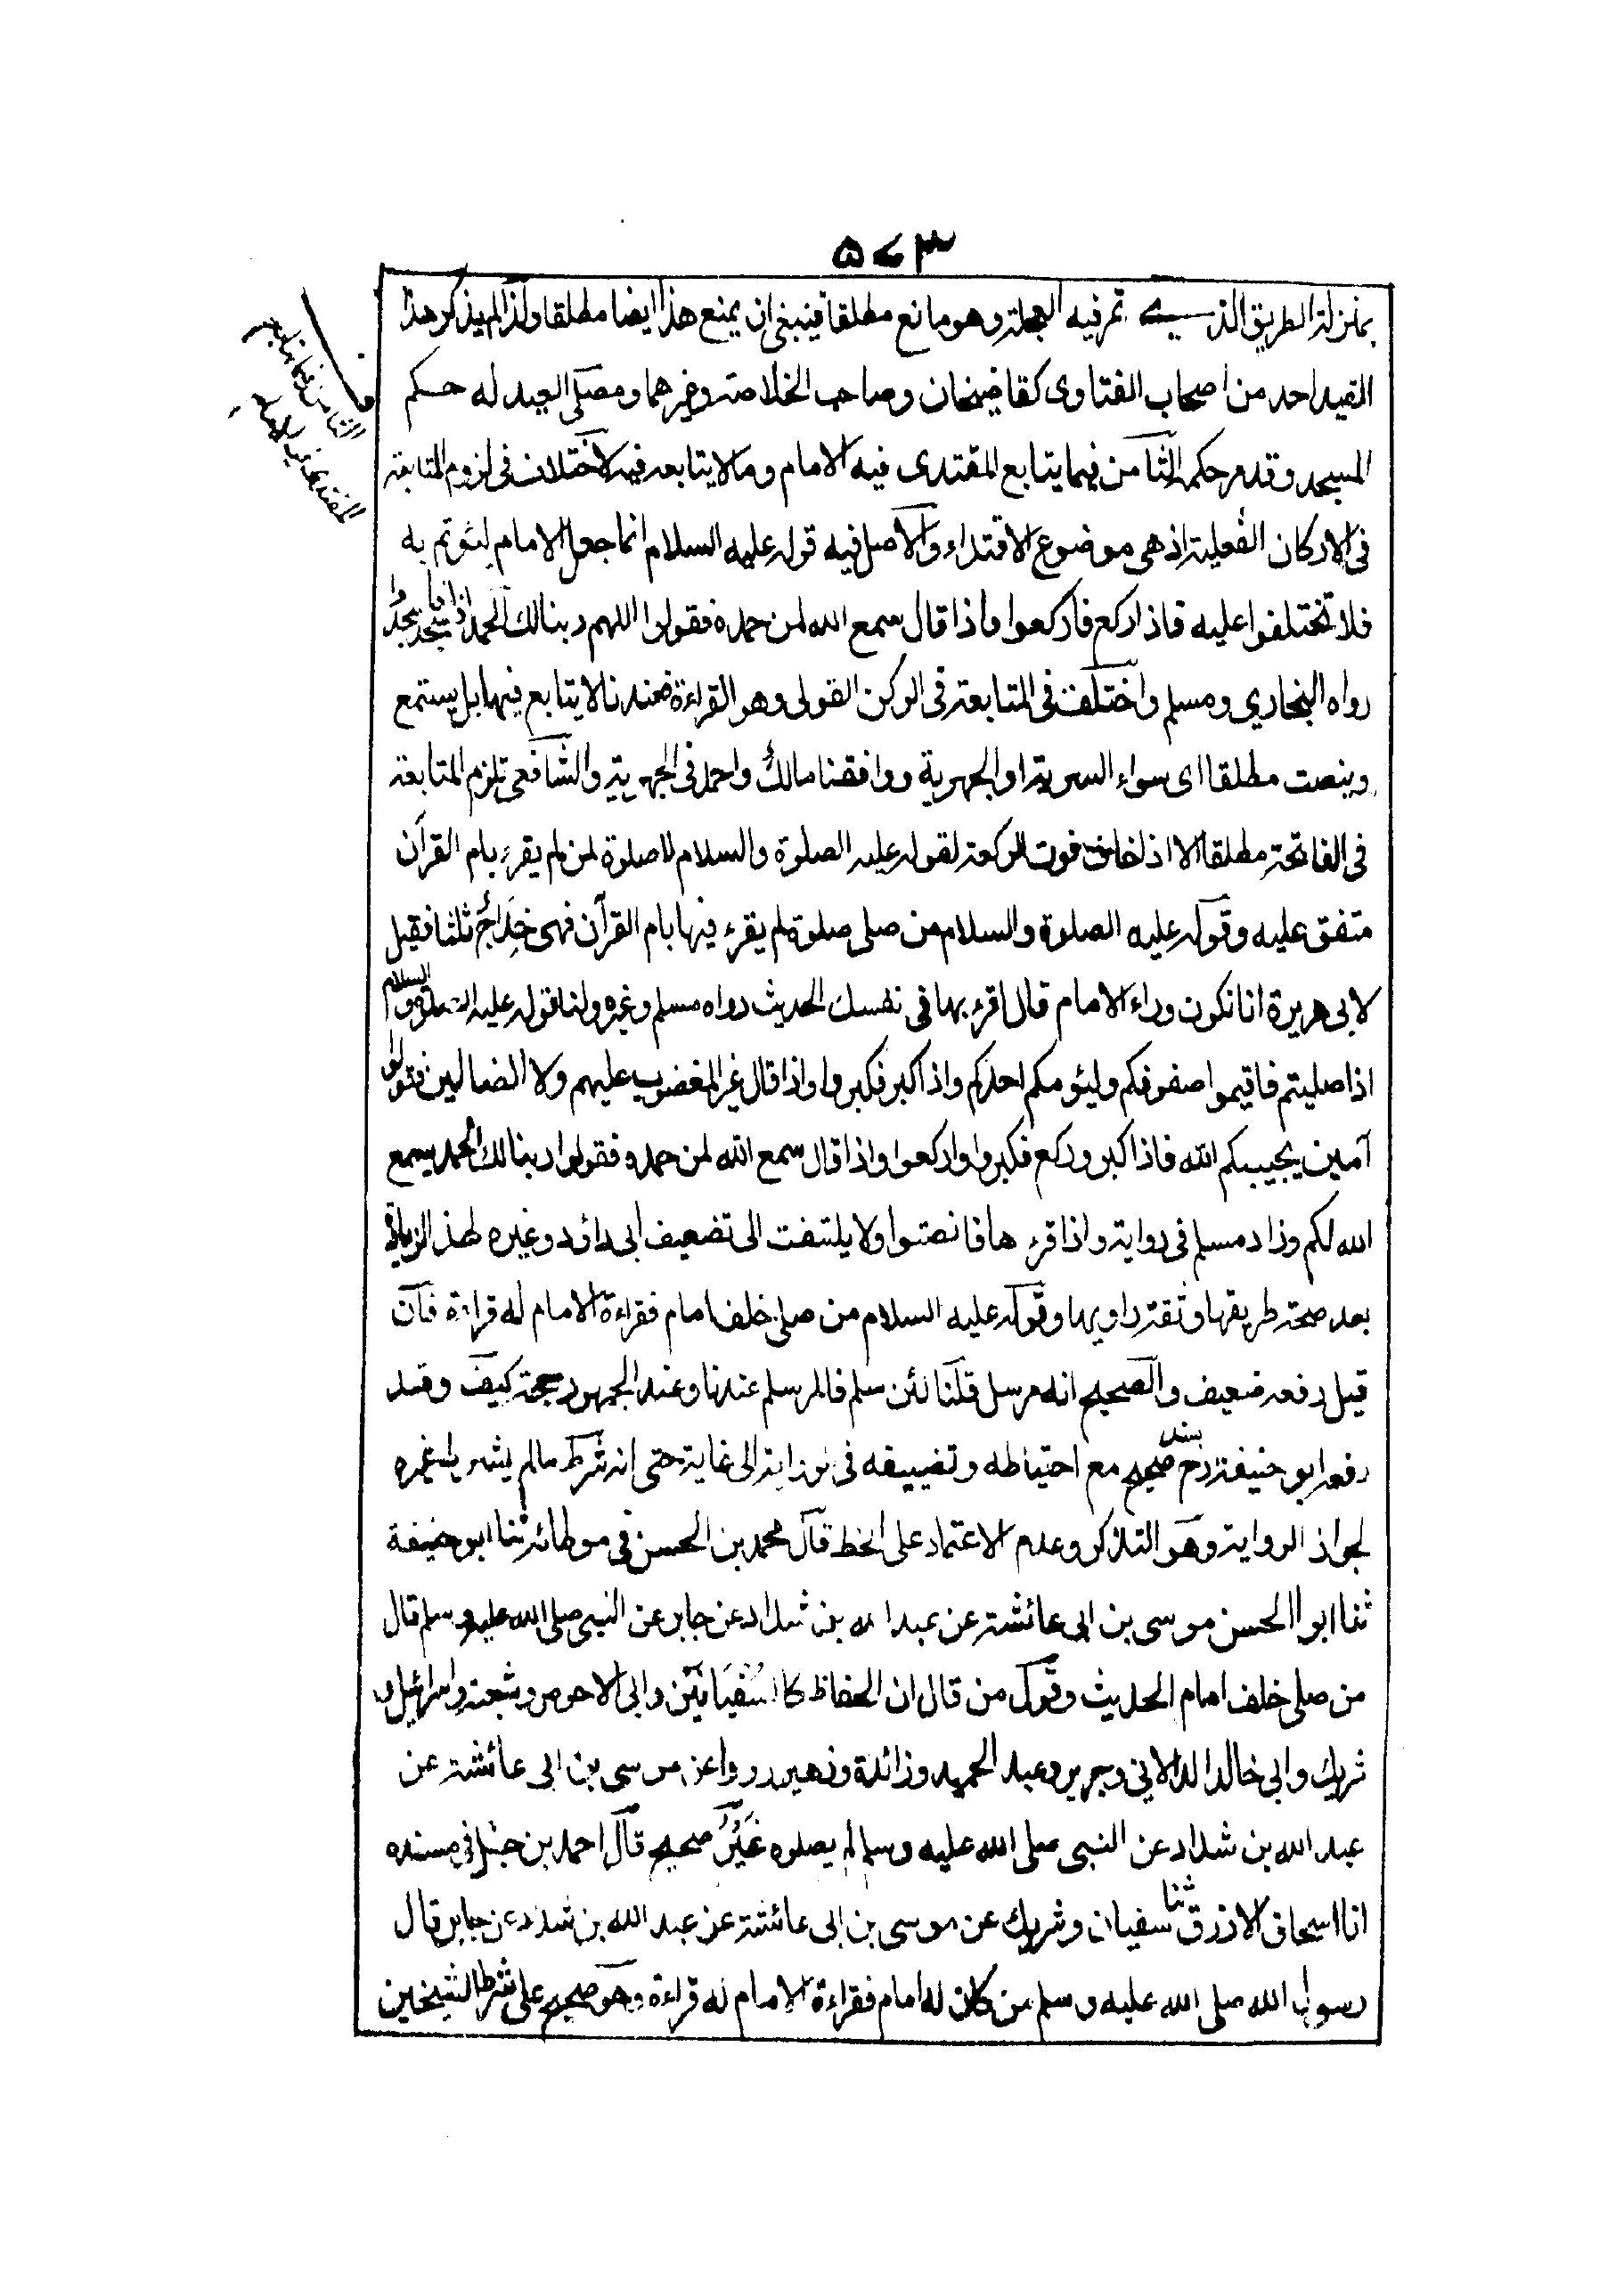 ۵۷۳
بمنزلة الطريق الذى تمر فيه العجلة وهو مانع مطلقا فينبغى ان يمنع هذا ايضا مطلقا ولذا لم يذكر هذا
القيد احد من اصحاب الفتاوى كقاضيخان وصاحب الخلاصة وغيرهما ومصلى العيد له حكم
المسجد وقد مر حكمه الثامن فيما يتابع المقتدى فيه الامام وما لا يتابعه فيه لا اختلاف فى لزوم المتابعة
فى الاركان الفعلية اذ هى موضوع الاقتداء والاصل فيه قوله عليه السلام انما جعل الامام ليئوتم به
فلا تختلفوا عليه فاذا ركع فاركعوا واذا قال سمع الله لمن حمده فقولوا اللهم ربنا لك الحمد واذا سجد فاسجدوا
رواه البخاري ومسلم واختلف فى المتابعة فى الركن القولى وهو القراءة فعندنا لا يتابع فيها بل يستمع
وينصت مطلقا اى سواء السرية او الجهرية ووافقنا مالك واحمد فى الجهرية والشافعى تلزم المتابعة
فى الفاتحة مطلقا الا اذا خاف فوت الركعة لقوله عليه الصلوة والسلام لا صلوة لمن لم يقرء بام القرآن
متفق عليه وقوله عليه الصلوة والسلام من صلى صلوة لم يقرء فيها بام القرآن فهى خداج ثلثا فقيل
لابى هريرة انا نكون وراء الامام قال اقرء بها فى نفسك الحديث رواه مسلم وغيره ولنا قوله عليه الصلوة والسلام
اذا صليتم فاقيموا صفوفكم وليئومكم احدكم واذا كبر فكبروا واذا قال غير المغضوب عليهم ولا الضالين فقولوا
آمين يجيبكم الله فاذا كبر وركع فكبروا واركعوا واذا قال سمع الله لمن حمده فقولوا ربنا لك الحمد يسمع
الله لكم وزاد مسلم فى رواية واذا قرء فانصتوا ولا يلتفت الى تضعيف ابى دائود وغيره لهذه الزيادة
بعد صحة طريقها وثقة راويها وقوله عليه السلام من صلى خلف امام فقراءة الامام له قراءة فان
قيل رفعه ضعيف والصحيح انه مرسل قلنا لئن سلم فالمرسل عندنا وعند الجمهور حجة كيف وقد
رفعه ابو حنيفة رح بسند صحيح مع احتياطه وتضييقه فى الرواية الى غاية حتى انه شرط ما لم يشترطه غيره
لجواز الرواية وهو التذكر وعدم الاعتماد على الخط قال محمد بن الحسن فى موطائه ثنا ابو حنيفة
ثنا ابو الحسن موسى بن ابى عائشة عن عبد الله بن شداد عن جابر عن النبى صلى الله عليه وسلم قال
من صلى خلف امام الحديث وقول من قال ان الحفاظ كالسفيانين وابى الاحوص وشعبة واسرائيل و
شريك وابى خالد الدالانى وجرير وعبد الحميد وزائدة وزهير رووا عن موسى بن ابى عائشة عن
عبد الله بن شداد عن النبى صلى الله عليه وسلم لم يصلوه غير صحيح قال احمد بن حنبل فى مسنده
انا اسحاق الازرق ثنا سفيان وشريك عن موسى بن ابى عائشة عن عبد الله بن شداد عن جابر قال
رسول الله صلى الله عليه وسلم من كان له امام فقراءة الامام له قراءة وهو صحيح على شرط الشيخين
الثامن فيما يتابع
المقتدى فيه الامام